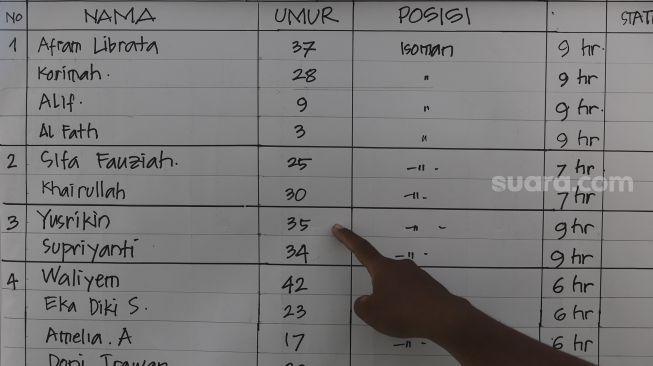 NO NAMA UMUR POSISI STATI
1 Afram Librata 37 Isoman 9 hr.
Korimah. 28 " 9 hr
Alif. 9 " 9 hr.
Al Fath 3 " 9 hr
2 Sifa Fauziah. 25 —"- 7 hr
Khairullah 30 —"- 7 hr
suara.com
3 Yusrikin 35 —" - 9 hr
Supriyanti 34 —"- 9 hr
4 Waliyem 42 6 hr
Eka Diki S. 23 6 hr
Amelia. A 17 —"- 6 hr